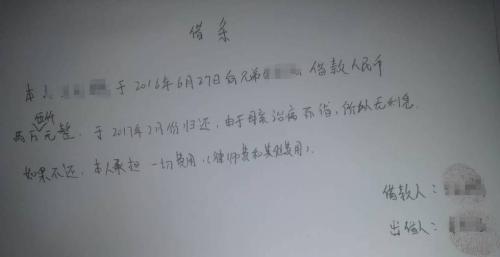 借条
本 于2016年6月27日向兄弟 借款人民币
两万
伍仟
元整，于2017年2月份归还，由于母亲治病所借，所以无利息。
如果不还，本人承担一切费用，（律师费和其他费用）。
借款人：
出借人：